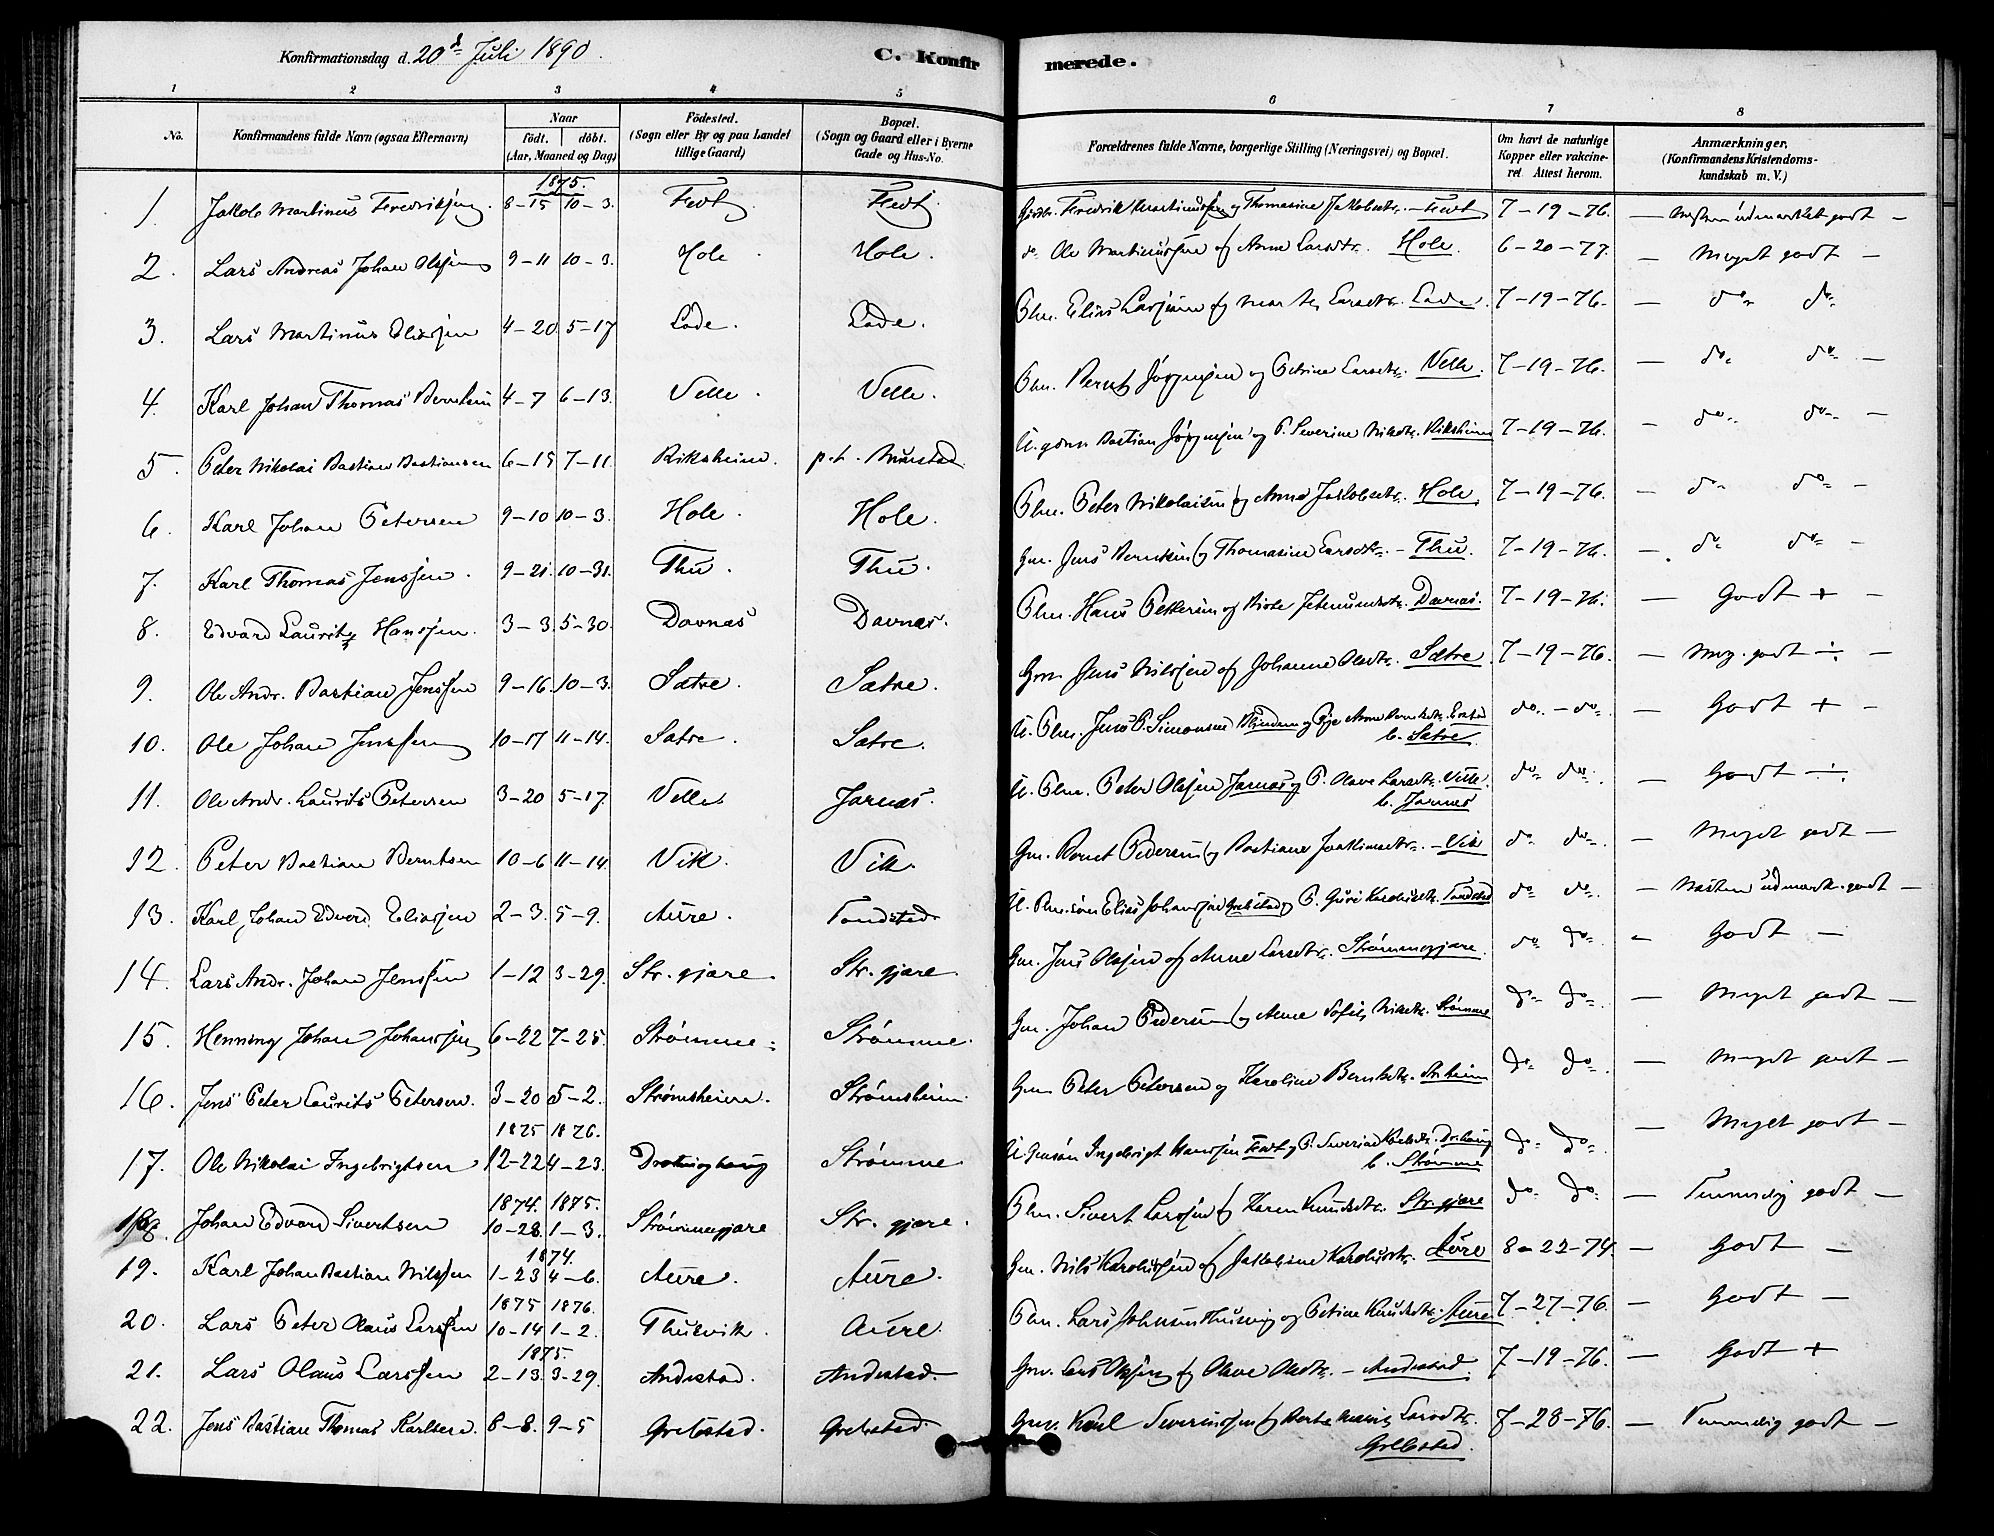 Konfirmationsdag d. 20d Juli 1890. C. Konfir merede.
1 2 3 4 5 6 7 8
No. Konfirmandens fulde Navn (ogsaa Efternavn) Naar født. døbt. (Aar, Maaned og Dag) Fødested. (Sogn eller By og paa Landet tillige Gaard) Bopæl. (Sogn og Gaard eller i Byerne Gade og Hus-No. Forældrenes fulde Navne, borgerlige Stilling (Næringsvei) og Bopæl. Om havt de naturlige Kopper eller vakcineret. Attest herom. Anmærkninger, (Konfirmandens Kristendomskundskab m. V.)
1875.
1. Jakob Martinus Fredriksen 8-15 10-3. Fedt Fedt Fredrik Martinussen og Thomasine Jakobsdtr. - Fedt 7-19-76. - udmærket godt -
2. Lars Andreas Johan Olsen 9-11 10-3. Hole. Hole. do Ole Martinussen og Anne Larsdtr. Hole. 6-20-77. - Meget godt -
3. Lars Martinus Eliassen 4-20 5-17 Lade. Lade. Elias Larssen og Larsdtr. Lade. 7-19-76. - do do
4. Karl Johan Thomas Berntsen 4-7 6-13. Velle. Velle. Bernt Jørgensen og Petrine Larsdtr. Velle. 7-19-76. - do do -
5. Peter Nikolai Bastian Bastiansen 6-15 7-11. Riksheim. p.t. Bastian Jørgensen og P. Severine Nilsdtr. Riksheim 7-19-76. - do do -
6. Karl Johan Petersen 9-10 10-3. Hole. Hole. Peter Nikolaisen og Anne Jakobsdtr. Hole 7-19-76. - do do -
7. Karl Thomas Jenssen. 9-21. 10-31. Thu. Thu. Gm. Jens Berntsen og Thomasine Larsdtr. - Thu. 7-19-76. - do do -
8. Edvard Lauritz Hanssen. 3-3. 5-30. Davnæs Davnæs. Hans Pettersen og Davnæs. 7-19-76. - Godt + -
9. Ole Andr. Bastian Jenssen 9-16. 10-3. Sætre. Sætre. Gm. Jens Nilssen og Johanne Olsdtr. Sætre. 7-19-76. - Meg. godt ÷ -
10. Ole Johan Jenssen 10-17 11-14. Sætre. Sætre. Jens P. Simonsen og Pige Anne Berntsdtr. b. Sætre. do - do - Godt + -
11. Ole Andr. Laurits Petersen 3-20 5-17. Velle Jarnæs. Peter Olssen Jarnæs og P. Olave Larsdtr. Velle. b. Jarnæs do do - Godt ÷
12. Peter Bastian Berntsen 10-6 11-14. Vik. Vik. Gm. Bernt Pedersen og Bastiane Joakimsdtr. - Vik do do - Meget godt -
13. Karl Johan Edvard Eliassen 2-3. 5-9. Aure. Tandstad Elias Johanssen Grebstad og P. Guri Tandstad do do - Næsten udmærk. godt -
14. Lars Andr. Johan Jenssen 1-12 3-29. Str. gjære. Str. gjære. Gm. Jens Olssen og Anne Larsdtr. Strømmegjære. do do - Godt -
15. Henning Johan Johanssen 6-22 7-25. Strømme. Strømme. Gm. Johan Pedersen og Anne Sofie Nilsdtr. Strømme do do - Meget godt -
16. Jens Peter Laurits Petersen. 3-20 5-2. Strømsheim. Strømsheim. Gm Peter Petersen og Karoline Berntsdtr. Str.heim do do - Meget godt -
1875 1876.
17. Ole Nikolai Ingebrigtsen 12-22 4-23. Dronninghaug Strømme Ingebrigt Hanssen Fedt og P. Severine Dr.haug b. Strømme do do - Meget godt -
1874. 1875.
18. Johan Edvard Sivertsen 10-28. 1-3. Strømmegjære Str. gjære. Sivert Larssen og Karen Knudsdtr. Str. gjære do do - Temmelig godt -
1874.
19. Karl Johan Bastian Nilssen 1-23 4-6. Aure. Aure. Gm. Nils Karolussen og Jakobine Karolusdtr. Aure 8-22-74. - Godt -
1875 1876.
20. Lars Peter Olaus Larssen 10-14 1-2. Thuevik. Aure. Lars Johnsen og Petrine Knudsdtr. Aure 7-27-76. - Godt -
1875.
21. Lars Olaus Larssen 2-13. 3-29. Andestad. Andestad. Gm. Lars Olssen og Olave Olsdtr. - Andestad. 7-19-76. - Godt +
22. Jens Bastian Thomas Karlsen. 8-8. 9-5 Grebstad. Grebstad. Karl Severinssen og Berte Marie Larsdtr. Grebstad. 7-28-76. - Temmelig godt -